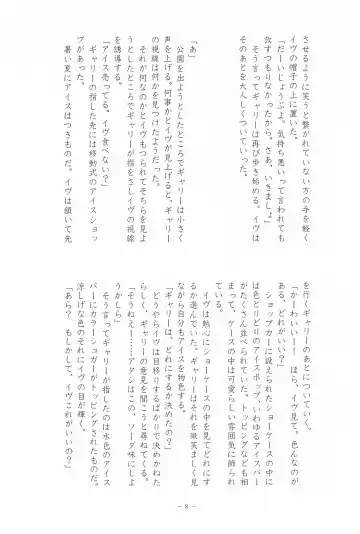 させるように笑うと繋がれていない方の手を軽く
イヴの帽子の上に置いた。
「だーいじょうぶよ。気持ち悪いって言われても
救すつもりなかったから。さあ、いきましょ」
そう言ってギャリーは再び歩き始める。イヴは
そのあとを大人しくついていった。
「あ」
公園を出ようとしたところでギャリーは小さく
声を上げる。何事かとイヴが見上げると、ギャリー
の視線は何かを見つけたようだった。
それが何なのかとイヴもつられてそちらを見よ
うとしたところでギャリーが指をさしイヴの視線
を誘導する。
「アイス売ってる。イヴ食べない？」
ギャリーの指した先には移動式のアイスショッ
プがあった。
暑い夏にアイスはつきものだ。イヴは頷いて先
を行くギャリーのあとについていく。
「かーわいいー！　ほら、イヴ見て。色んなのが
ある。どれがいい？」
ショップカーに設えられたショーケースの中に
は色とりどりのアイスポップ、いわゆるアイスバー
がたくさん並べられていた。トッピングなども相
まって、ケースの中は可愛らしい雰囲気に飾られ
ている。
イヴは熱心にショーケースの中を見てどれにす
るか選んでいた。ギャリーはそれを微笑ましく見
ながら自分もアイスを物色する。
「ギャリーは、どれにするか決めたの？」
どうやらイヴは目移りするばかりで決めかねた
らしく、ギャリーの意見を聞こうと尋ねてくる。
「そうねえ……アタシはこの、ソーダ味にしよ
うかしら」
そう言ってギャリーが指したのは水色のアイス
バーにカラーシュガーがトッピングされたものだ。
涼しげな色のそれにイヴの目が輝く。
「あら？　もしかして、イヴこれがいいの？」
－8－